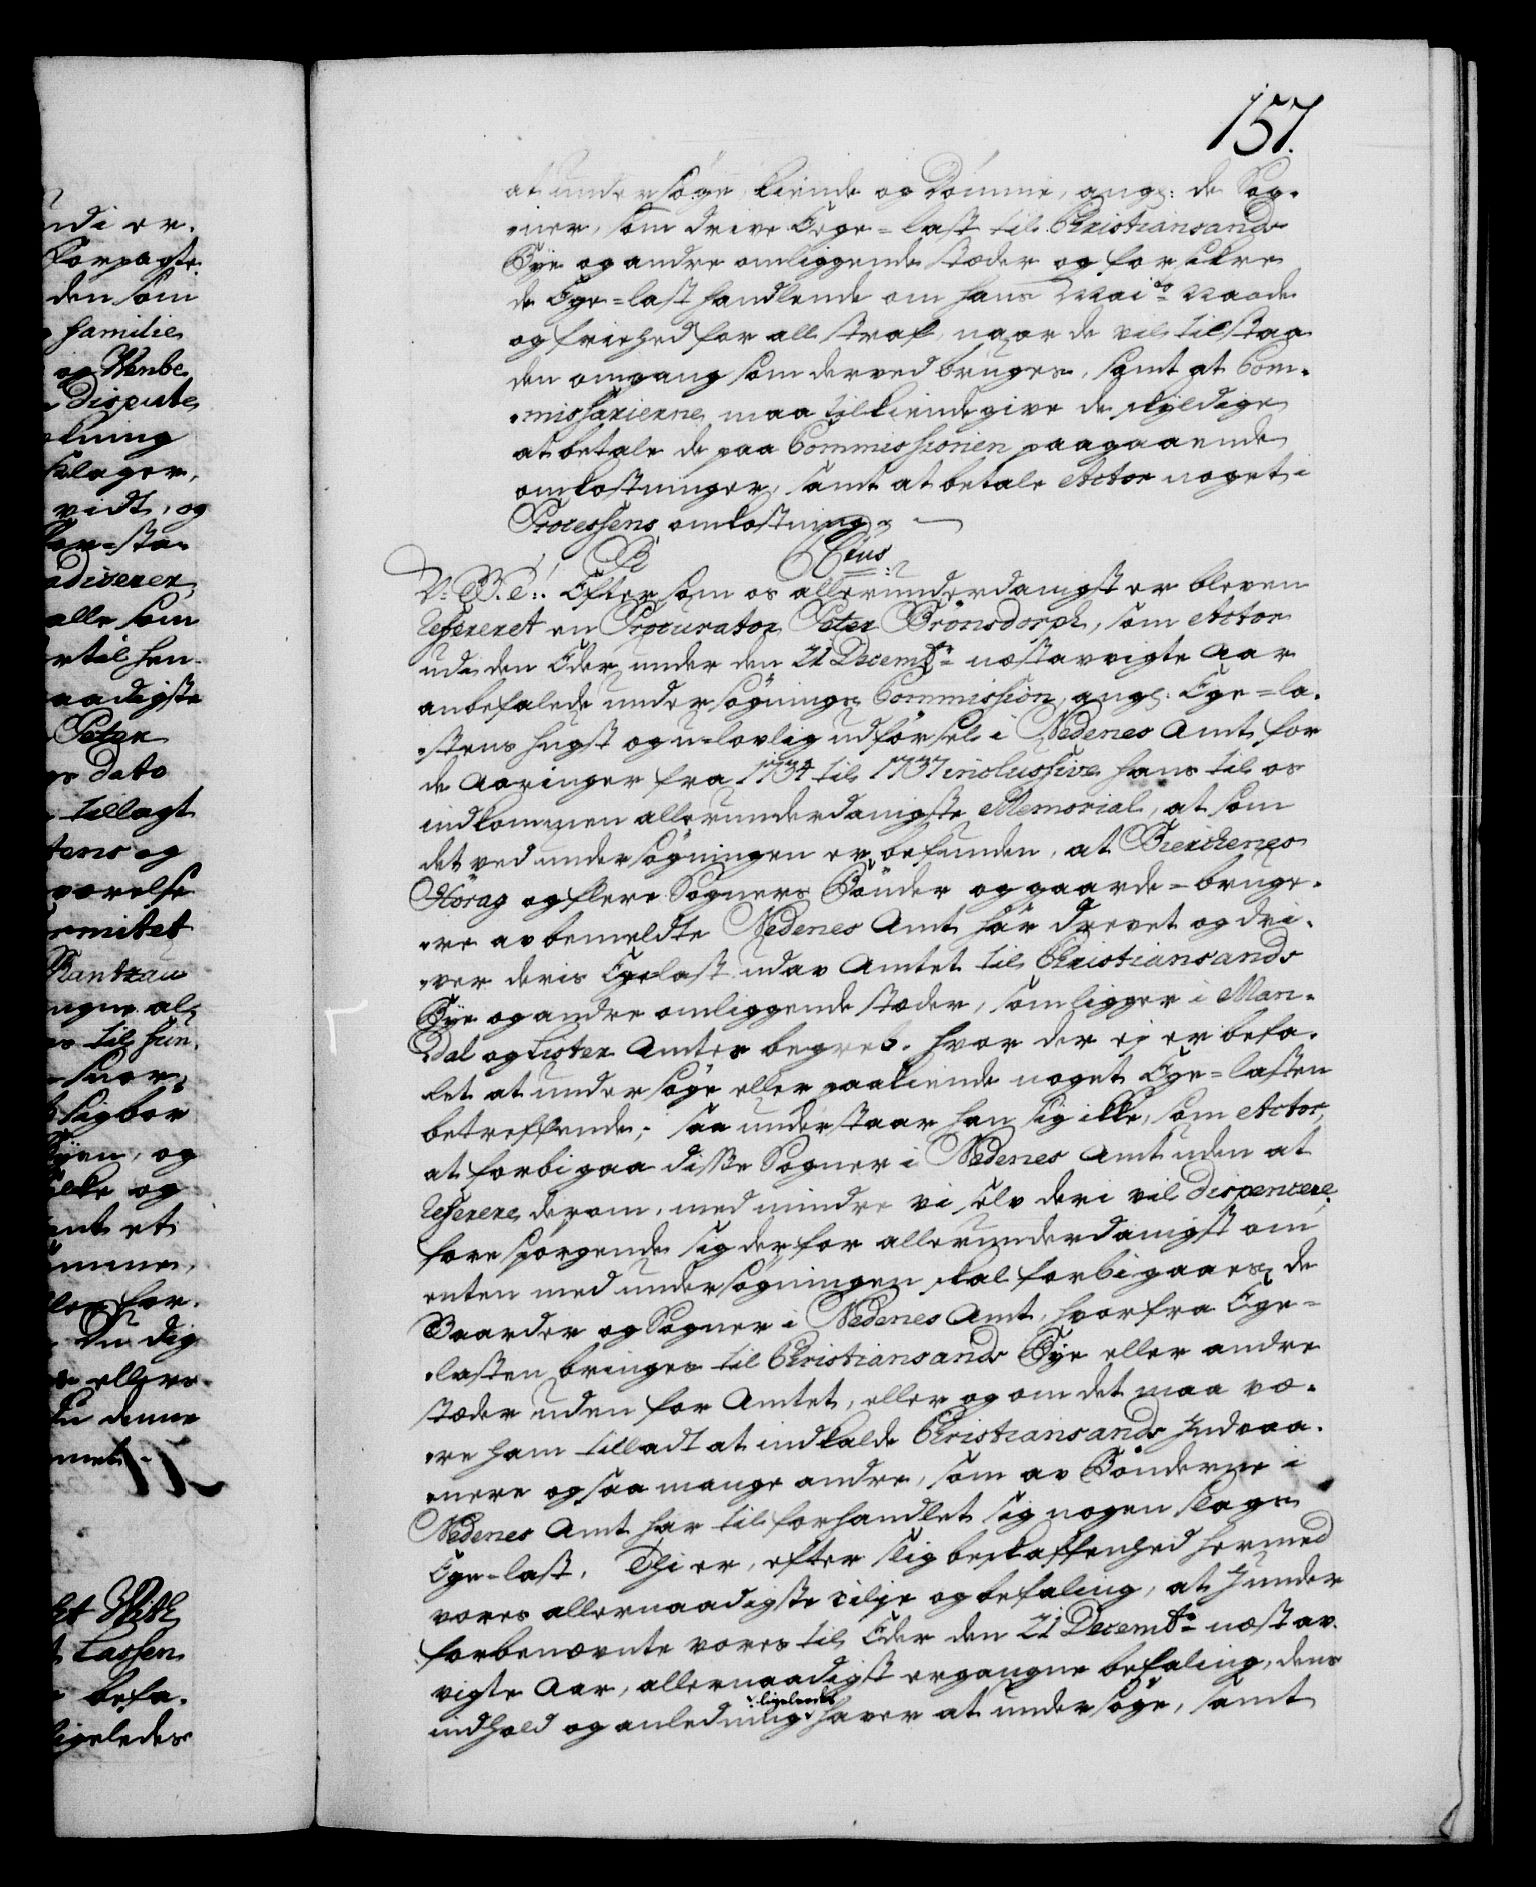 157.
at undersøge, kiende og dømme, angl: de Sog-
ner, som drive Ege-last til Christiansands
Bye og andre omliggende stæder og forsikre
de Ege-last handlende om hans Maits Naade
og friehed for all straf, naar de vil tilstaa
den omgang som derved bruges, samt at Com-
missarierne maa tilkiendegive de skyldige
at betale de paa Commissionen paagaaende
omkostninger, samt at betale Actor noget i
Processens omkostning.
C 6tus:
V: G: T:. Eftersom os allerunderdanigst er bleven
refereret en Procurator Peter Brönsdorph, som Actor
udi den Eder under den 21 Decembr næstavvigte Aar
anbefalede undersøgnings Commission, angl: Ege-la-
stens hugst og u-lovlig udførsel i Nedenes Amt for
de Aaringer fra 1734 til 1737 inclussive hans til os
indkommen allerunderdanigste Memorial, at som
det ved undersøgningen er befunden, at Bierchenes
Hörag og flere Sogners Bønder og gaarde-bruge-
re av bemeldte Nedenes Amt har drevet og dri-
ver deris Egelast udav Amtet til Christiansands
Bye og andre omliggende stæder, som ligger i Man-
dal og Lister Amters begreb. hvor der ej er befa-
let at undersøge eller paakiende noget Ege-lasten
betreffende; saa understaar han sig ikke, som Actor,
at forbigaa disse Sogner i Nedenes Amt uden at
referere derom, med mindre vi selv deri vil dispencere,
forespørgende sig derfor allerunderdanigst om
enten med undersøgningen skal forbigaaes de
Gaarder og Sogner i Nedenes Amt, hvorfra Ege-
lasten bringes til Christiansands Bye eller andre
stæder uden for Amtet, eller og om det maa væ-
re ham tilladt at indkalde Christiansands Indvaa-
nere og saa mange andre, som av Bønderne i
Nedenes Amt har tilforhandlet sig nogen slags
Ege-last. Thi er, efter slig beskaffenhed hermed
vores allernaadigste vilje og befaling, at I under
forbenævnte vores til Eder den 21 Decembr næstav-
vigte Aar, allernaadigst ergangne befaling, dens
indhold og anledning ligeleedes haver at undersøge, samt